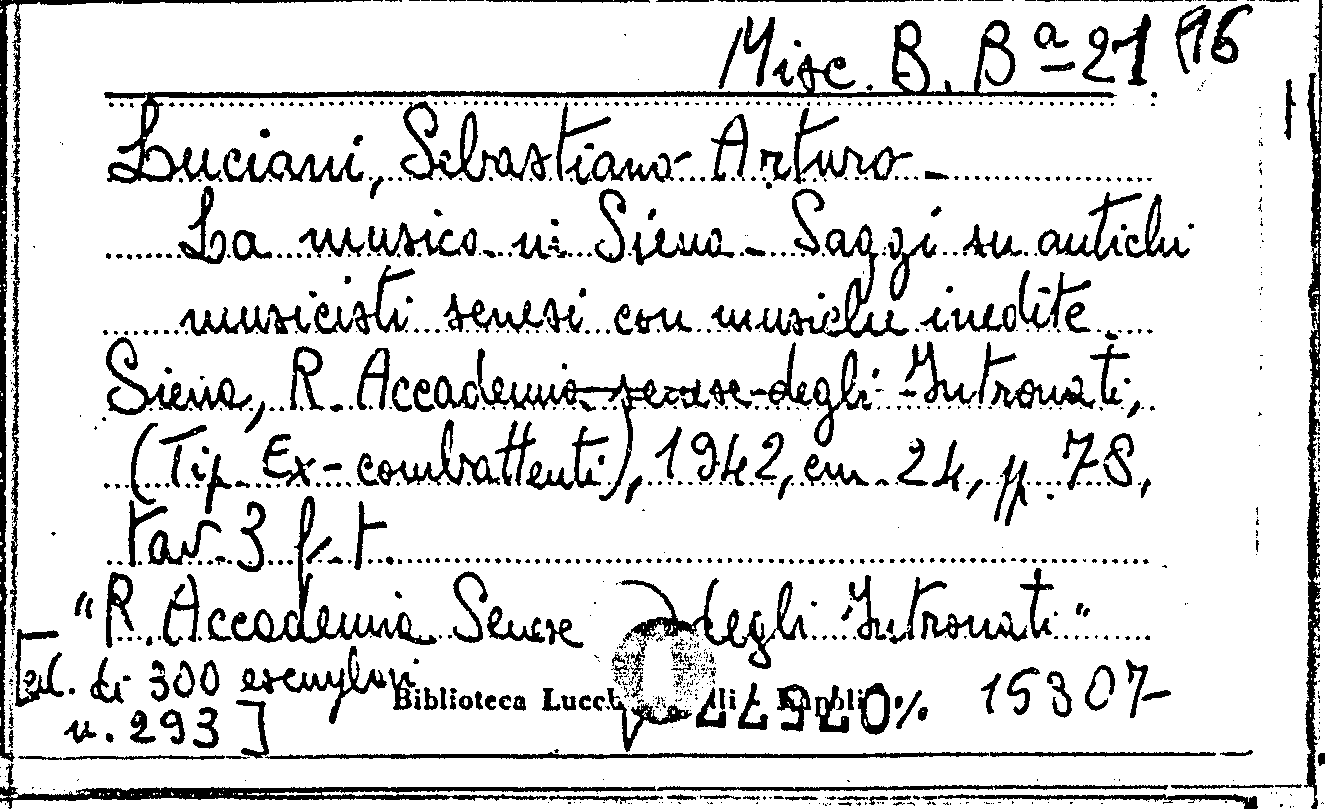 Misc. B. Bª 21 (16
Luciani, Sebastiano Arturo -
La musica in Siena - Saggi su antichi
musicisti senesi con musiche inedite.
Siena, R. Accademia senese degli Intronati,
(Tip. Ex-combattenti), 1942, cm. 24, pp. 78,
tav. 3 f. t.
"R. Accademia Senese degli Intronati"
[ed. di 300 esemplari
n. 293]
Biblioteca
15307